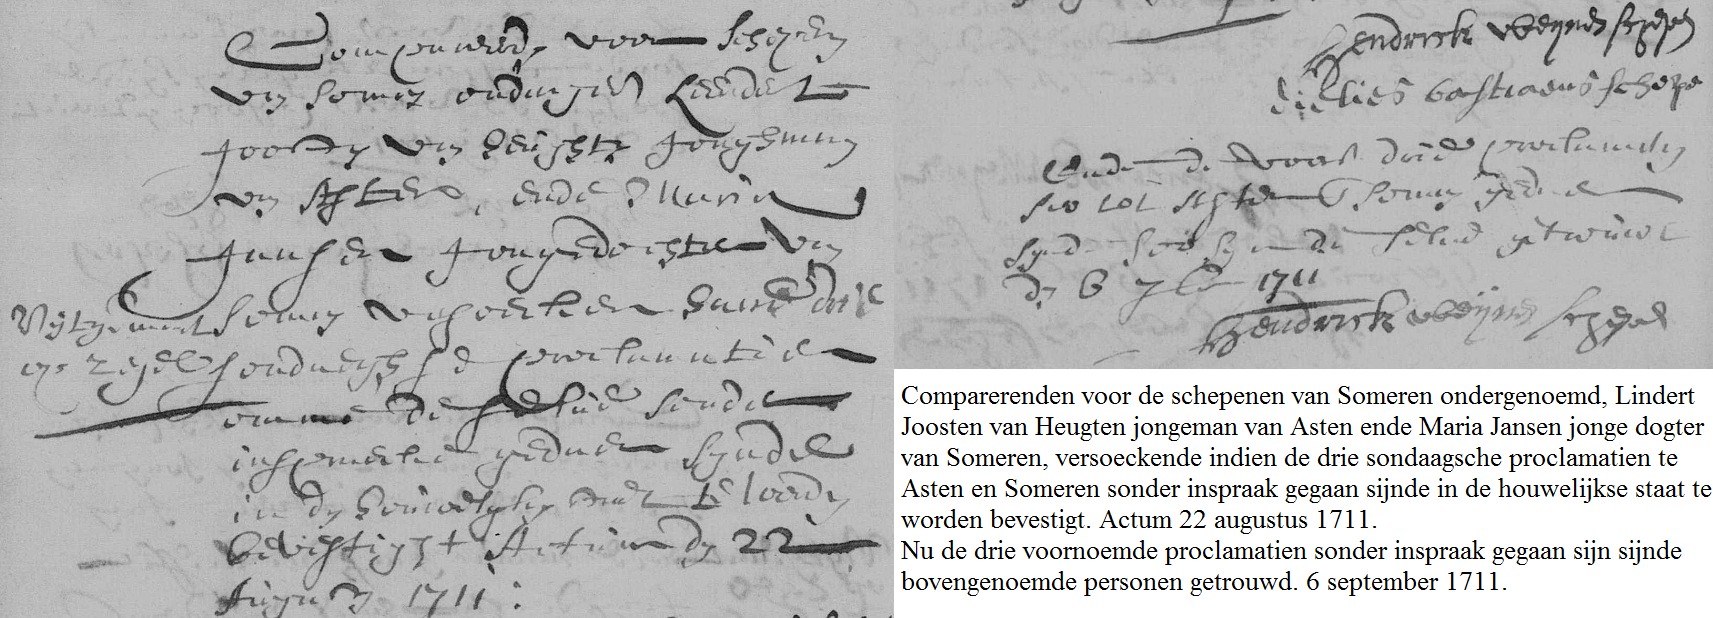 Compareerden voor Schepenen
van Someren ondergen. Leendert
Joosten van Heughten Jonghman
van Asten, ende Maria
Jansen Jongedochter van
Someren versoecken haere drie
sondaeghse proclamatien
omme de selve sonder
inspraecke gedaen synde
in den houwelycken staet te worden
bevestight Actum den 22
Augusty 1711 :
Hendrick
Dielies bastiaens schepen
Ende de voors. drie proclamatien
soo tot Asten Someren gedaen
synde soo syn de selve getrouwt
den 6 7br 1711
Hendrick
Comparerenden voor de schepenen van Someren ondergenoemd, Lindert
Joosten van Heugten jongeman van Asten ende Maria Jansen jonge dogter
van Someren, versoeckende indien de drie sondaagsche proclamatien te
Asten en Someren sonder inspraak gegaan sijnde in de houwelijkse staat te
worden bevestigt. Actum 22 augustus 1711.
Nu de drie voornoemde proclamatien sonder inspraak gegaan sijn sijnde
bovengenoemde personen getrouwd. 6 september 1711.